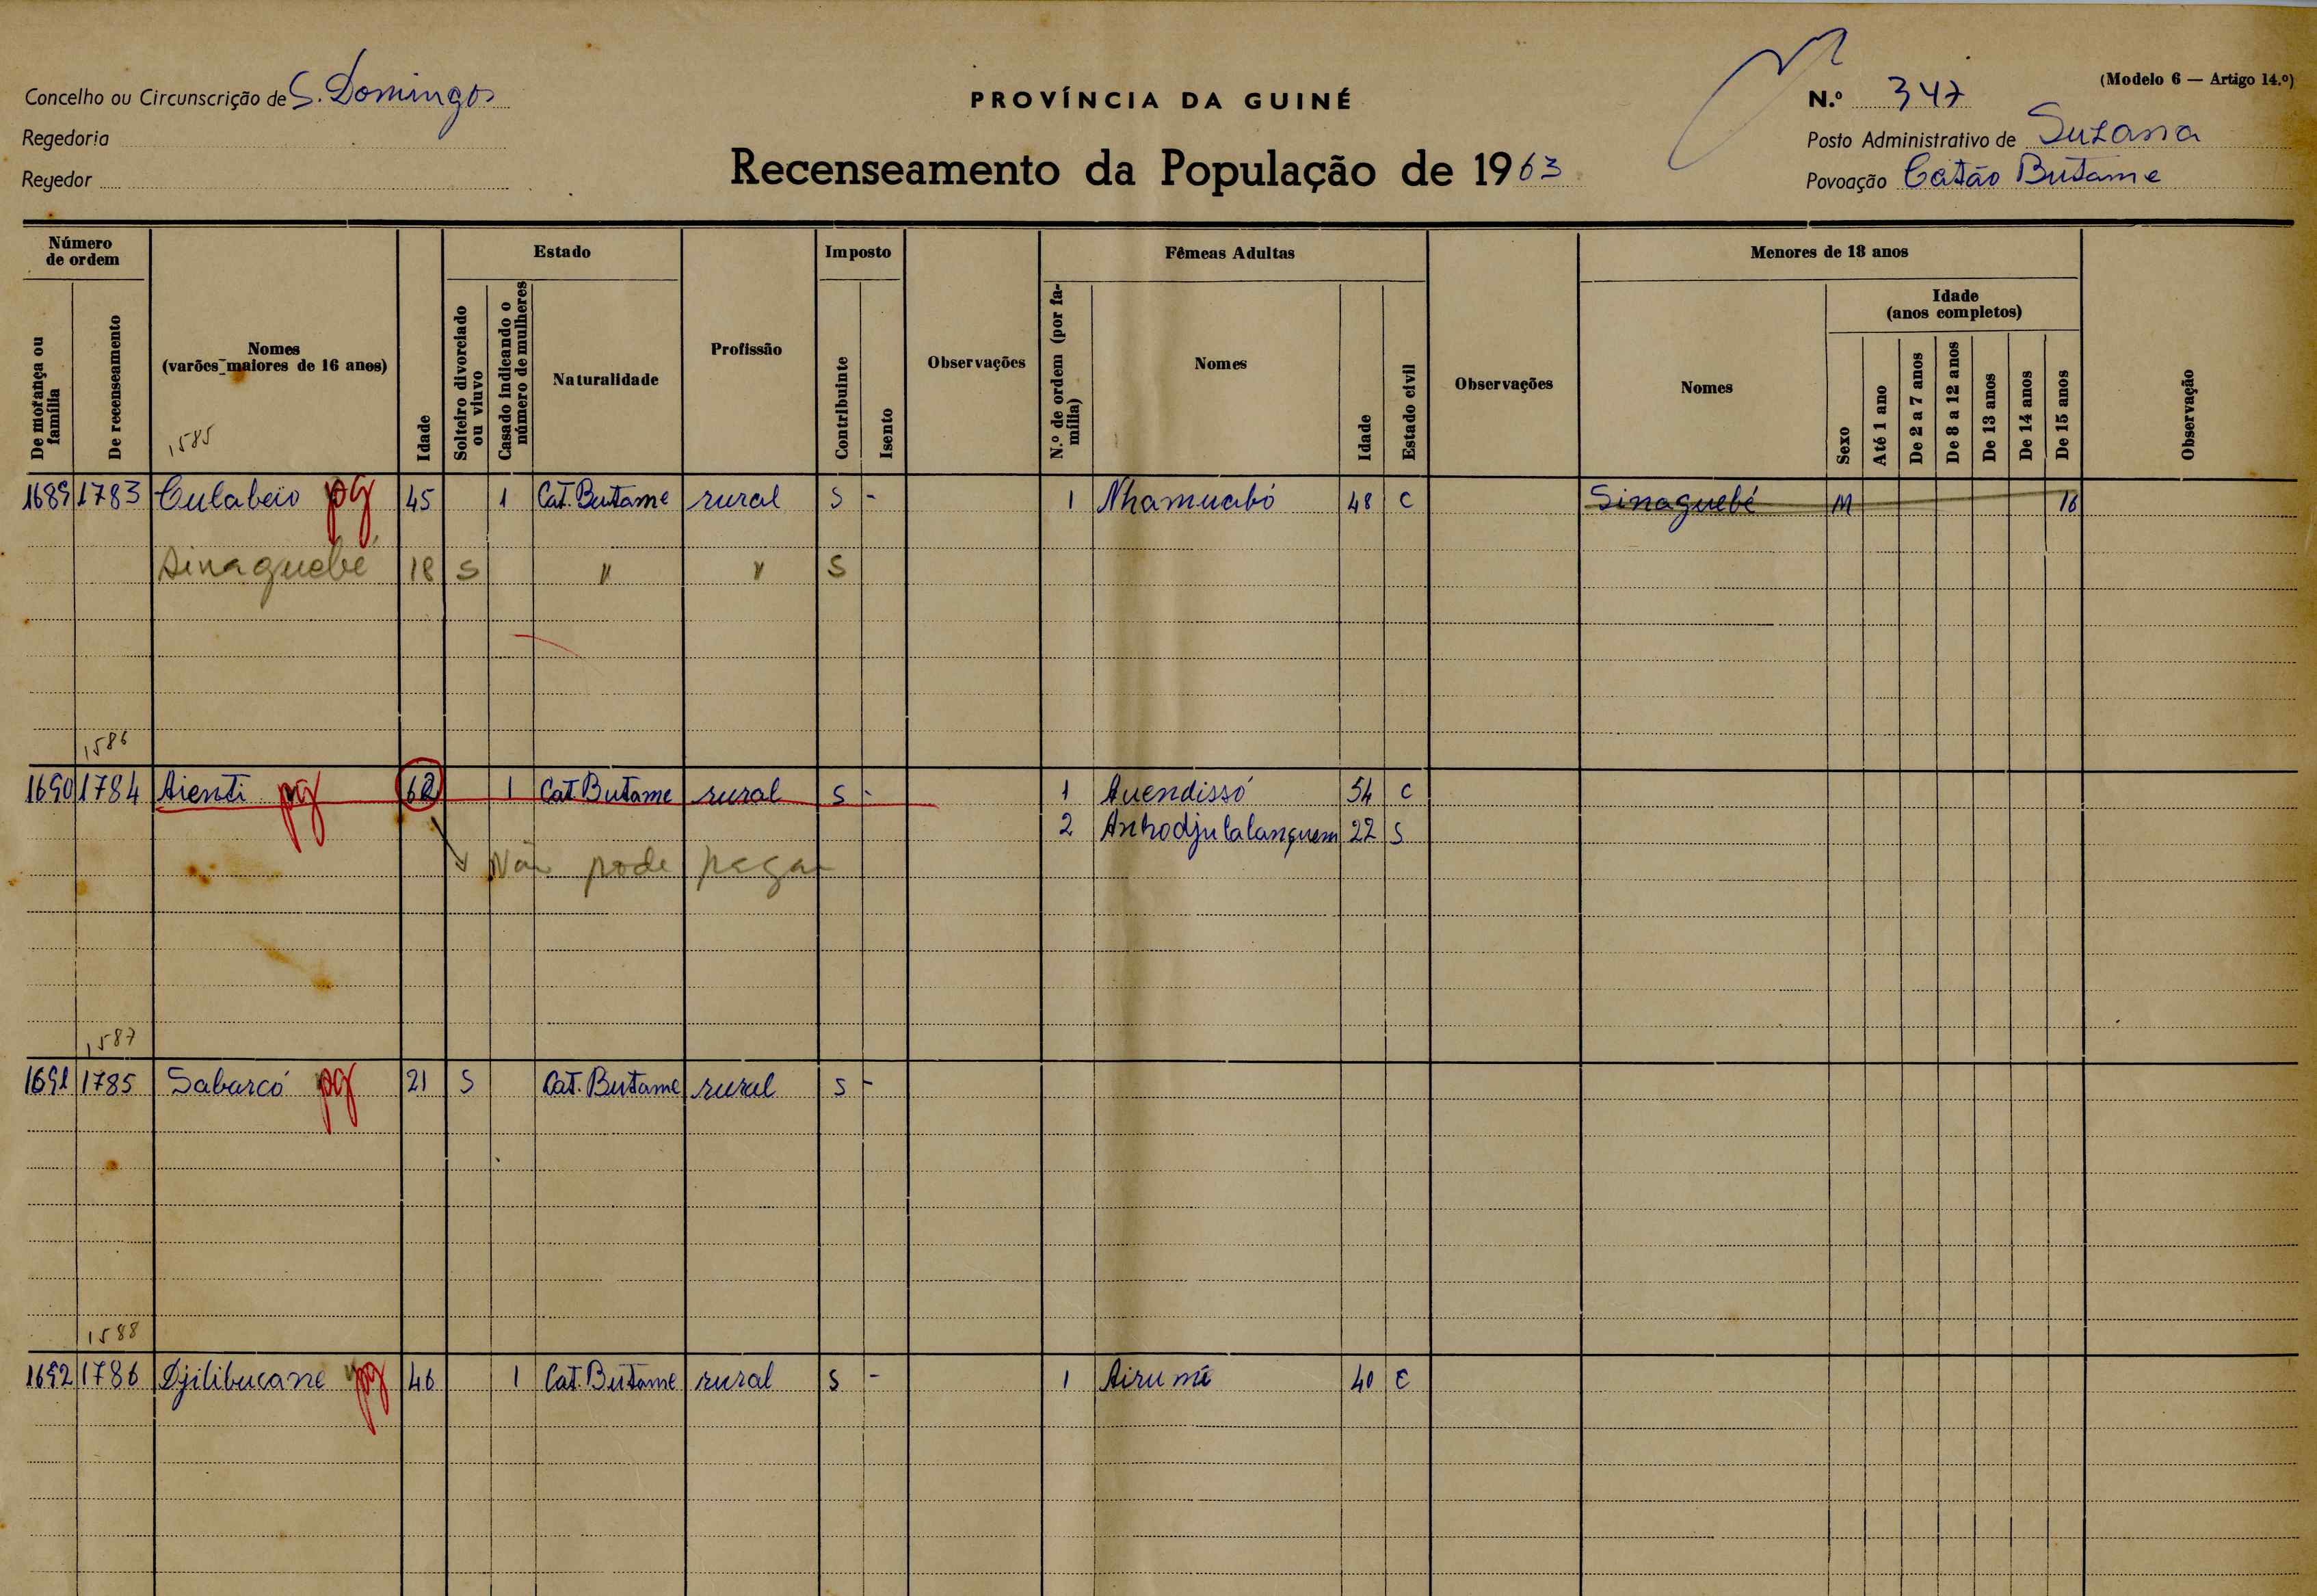 (Modelo 6 — Artigo 14.º)
Concelho ou Circunscrição de S. Domingos
PROVÍNCIA DA GUINÉ
N.º 347
Regedoria
Posto Administrativo de Suzana
Regedor
Recenseamento da População de 1963
Povoação Catão Butame
Número de ordem
De morança ou família
De recenseamento
Nomes
(varões maiores de 16 anos)
Idade
Estado
Solteiro divorciado ou viuvo
Casado indicando o número de mulheres
Naturalidade
Profissão
Imposto
Contribuinte
Isento
Observações
Fêmeas Adultas
N.º de ordem (por família)
Nomes
Idade
Estado civil
Observações
Menores de 18 anos
Nomes
Idade
(anos completos)
Sexo
Até 1 ano
De 2 a 7 anos
De 8 a 12 anos
De 13 anos
De 14 anos
De 15 anos
Observação
1585
1689 1783 Culabeio pg 45 1 Cat. Butame rural S - 1 Nhamuabó 48 C Sinaguebé M 16
Sinaguebé 18 S " " S
1586
1690 1784 Aienti pg 62 1 Cat Butame rural S - 1 Auendissó 54 C
2 Anhodjulalanquem 22 S
Não pode pagar
1587
1691 1785 Sabarcó pg 21 S Cat. Butame rural S -
1588
1692 1786 Djilibucane pg 46 1 Cat. Butame rural S - 1 Airumé 40 C